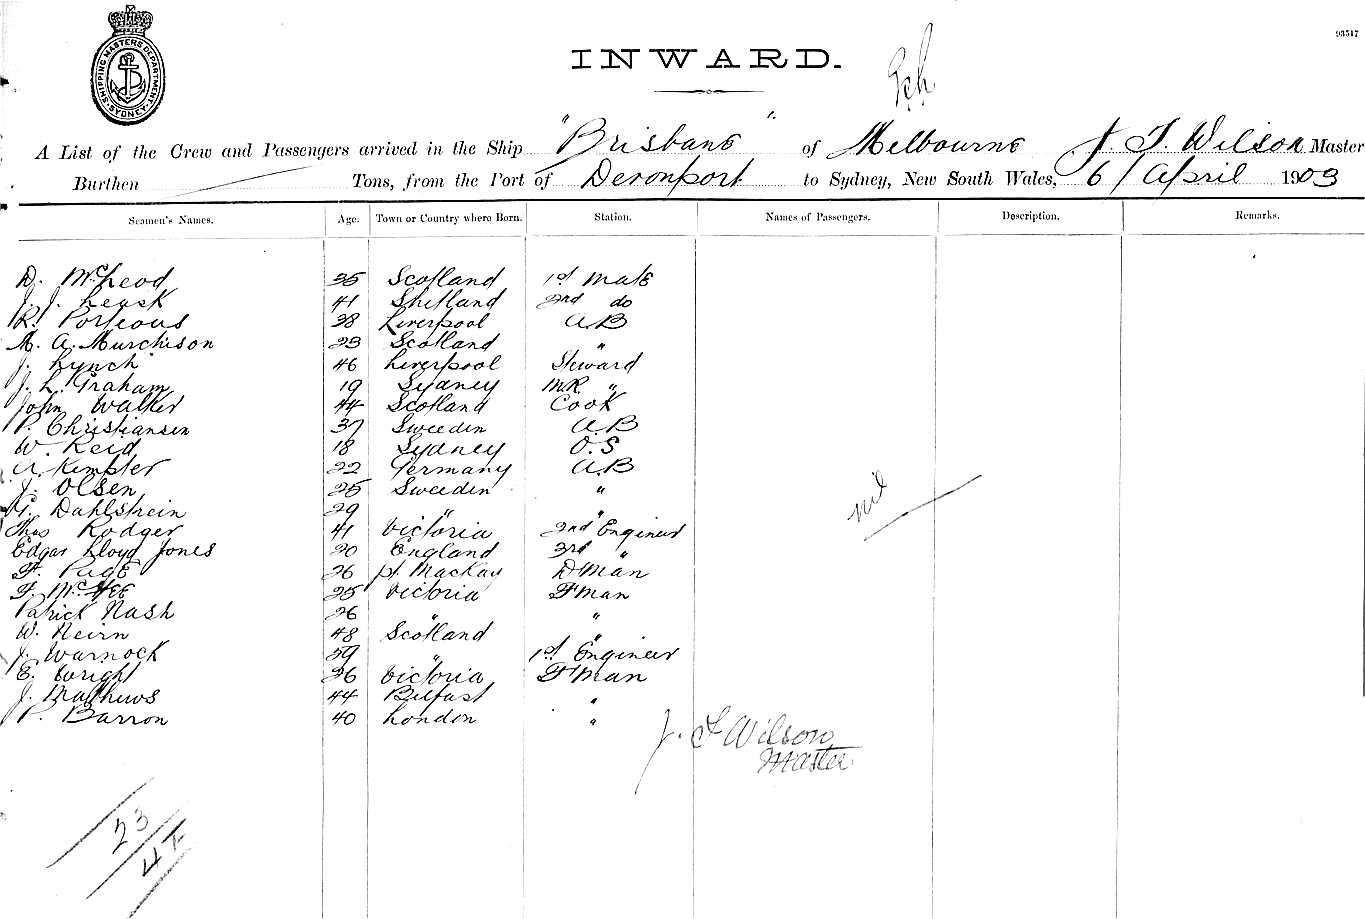 93517
SHIPPING MASTERS DEPARTMENT SYDNEY
INWARD.
A List of the Crew and Passengers arrived in the Ship "Brisbane" of Melbourne J. F. Wilson Master
Burthen Tons, from the Port of Devonport to Sydney, New South Wales, 6 / April 1903
Seamen's Names. Age. Town or Country where Born. Station. Names of Passengers. Description. Remarks.
D. McLeod 35 Scotland 1st Mate
J. J. Leask 41 Shetland 2nd do
R. Porteous 38 Liverpool AB
M. A. Murchison 23 Scotland "
J. Lynch 46 Liverpool Steward
J. L. Graham 19 Sydney M.R. "
John Walker 44 Scotland Cook
P. Christiansen 37 Sweeden A.B
W. Reid 18 Sydney O.S
A. Kempter 22 Germany A.B
J. Olsen 25 Sweeden "
G. Dahlstrein 29 " "
Thos Rodger 41 Victoria 2nd Engineer
Edgar Lloyd Jones 20 England 3rd "
F. Page 26 pt. MacKay D Man
F. McGee 25 Victoria F man
Patrick Nash 26 " "
W. Neirn 48 Scotland "
J. Warnock 59 " 1st Engineer
E. Wright 26 Victoria F man
J. Mathews 44 Belfast "
P. Barron 40 London "
nil
J. F Wilson
Master
23